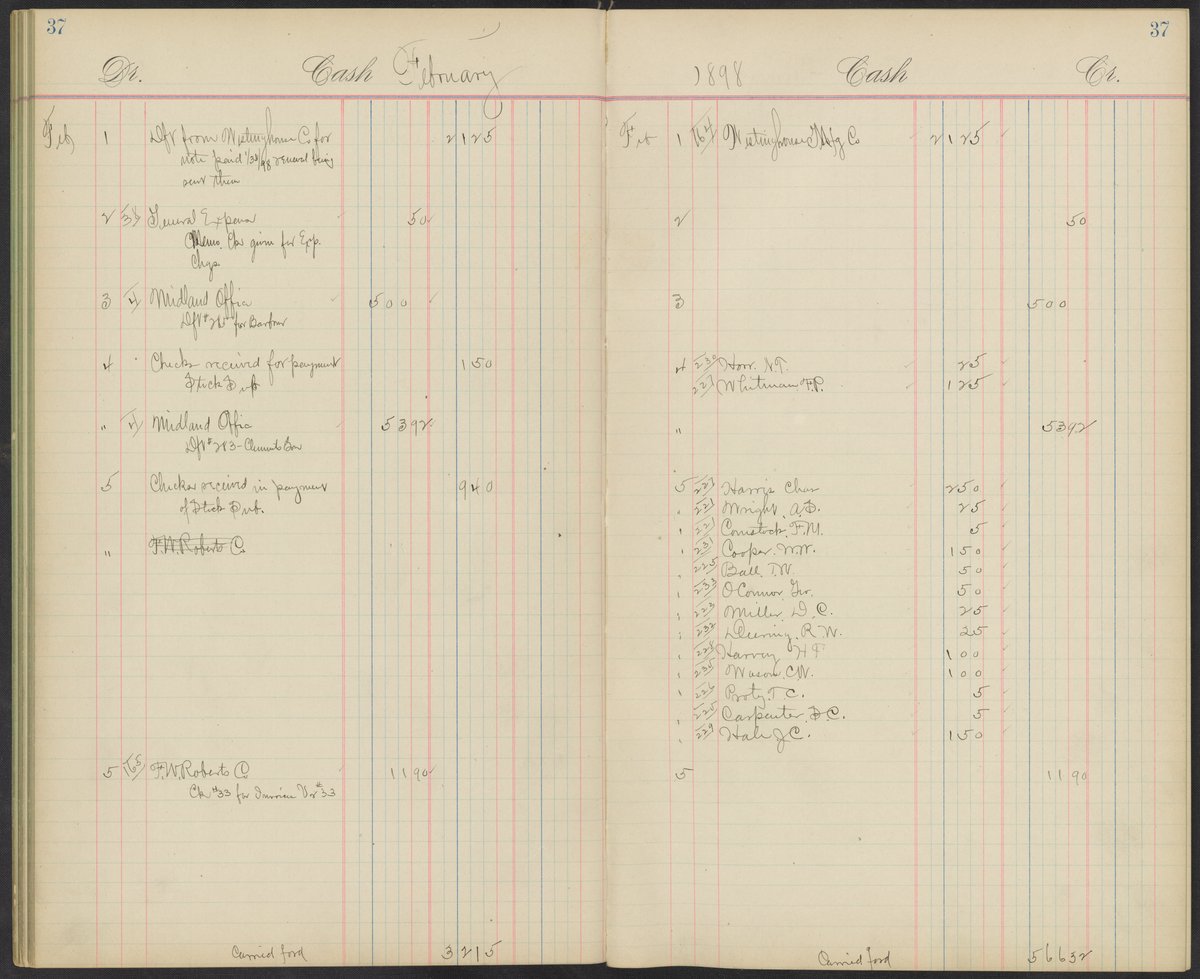 37
Dr. Cash February
Feb 1 Dft from Westinghouse Co for 2125
note paid 1/31/98 renewal being
sent them
2 General Expense 50
Memo. Ck given for Exp.
Chgs
3 Midland Office 500
for Barbour
4 Checks received for payment 150
Stock Sub
" Midland Office 5392
Dft # 283 - Clements Bro
5 Checks received in payment 940
of Stock Sub.
" F.W. Roberts Co
5 165 F.W. Roberts Co 1190
Ck #33 for Invoice Vo #33
Carried ford 3215
37
1898 Cash Cr.
Feb 1 164 Westinghouse Mfg Co 2125
2 50
3 500
4 230 Horr. N.T. 25
227 Whitman F.P. 125
" 5392
5 227 Harris Chas 250
" 221 Wright. A.S. 25
" 221 Comstock. F.M. 5
" 231 Cooper. W.W. 150
" 225 Ball. T.W. 50
" 233 O'Connor. Geo. 50
" 223 Miller. D.C. 25
" 232 Deering. R.W. 25
" 228 Harvey H F 100
" 235 Wason. C.W. 100
" 226 Proty. T C. 5
" 225 Carpenter. D.C. 5
" 229 Hale J C. 150
5 1190
Carried ford 5663 2